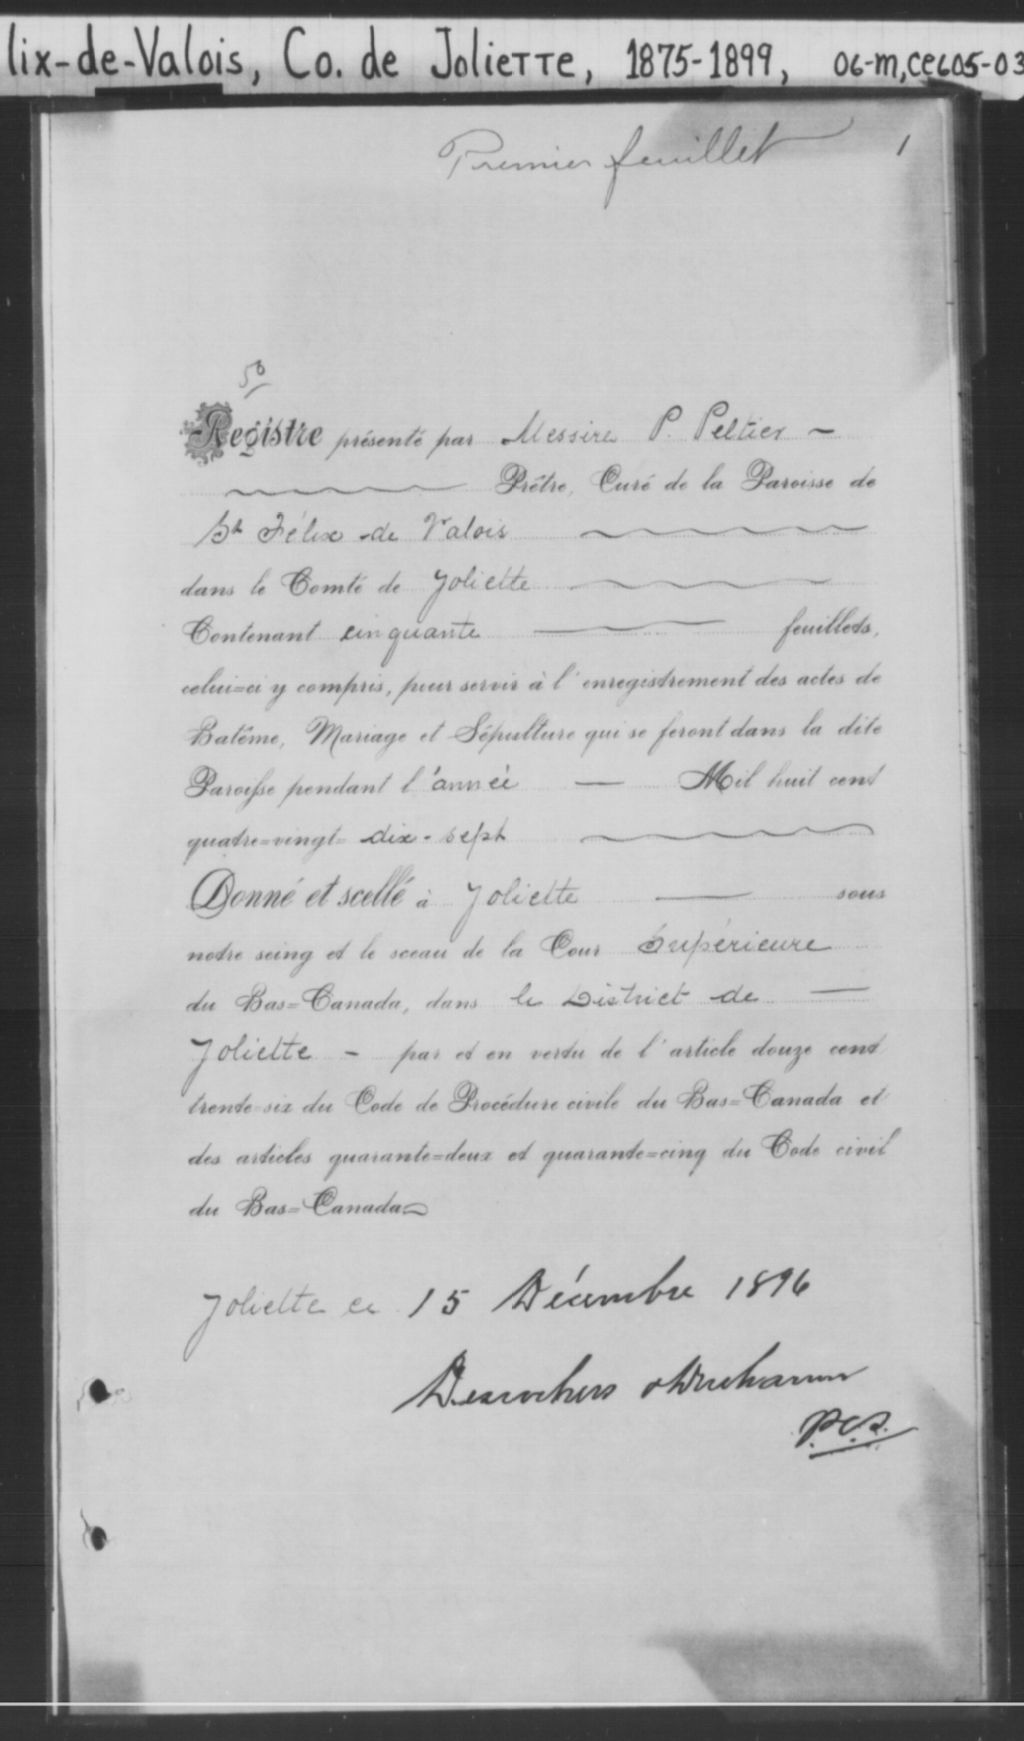 lix-de-Valois, Co. de Joliette, 1875-1899, 06-m,ce605-03
Premier feuillet 1
50
Registre présenté par Messire P. Peltier
Prêtre, Curé de la Paroisse de
St Félix de Valois
dans le Comté de Joliette
Contenant cinquante feuillets,
celui=ci y compris, pour servir à l'enregistrement des actes de
Batême, Mariage et Sépulture qui se feront dans la dite
Paroisse pendant l'année — Mil huit cent
quatre=vingt= dix-sept
Donné et scellé à Joliette — sous
notre seing et le sceau de la Cour Supérieure
du Bas=Canada, dans le District de —
Joliette - par et en vertu de l'article douze cent
trente-six du Code de Procédure civile du Bas=Canada et
des articles quarante=deux et quarante=cinq du Code civil
du Bas=Canada
Joliette ce 15 Décembre 1896
Desrochers
P.C.S.